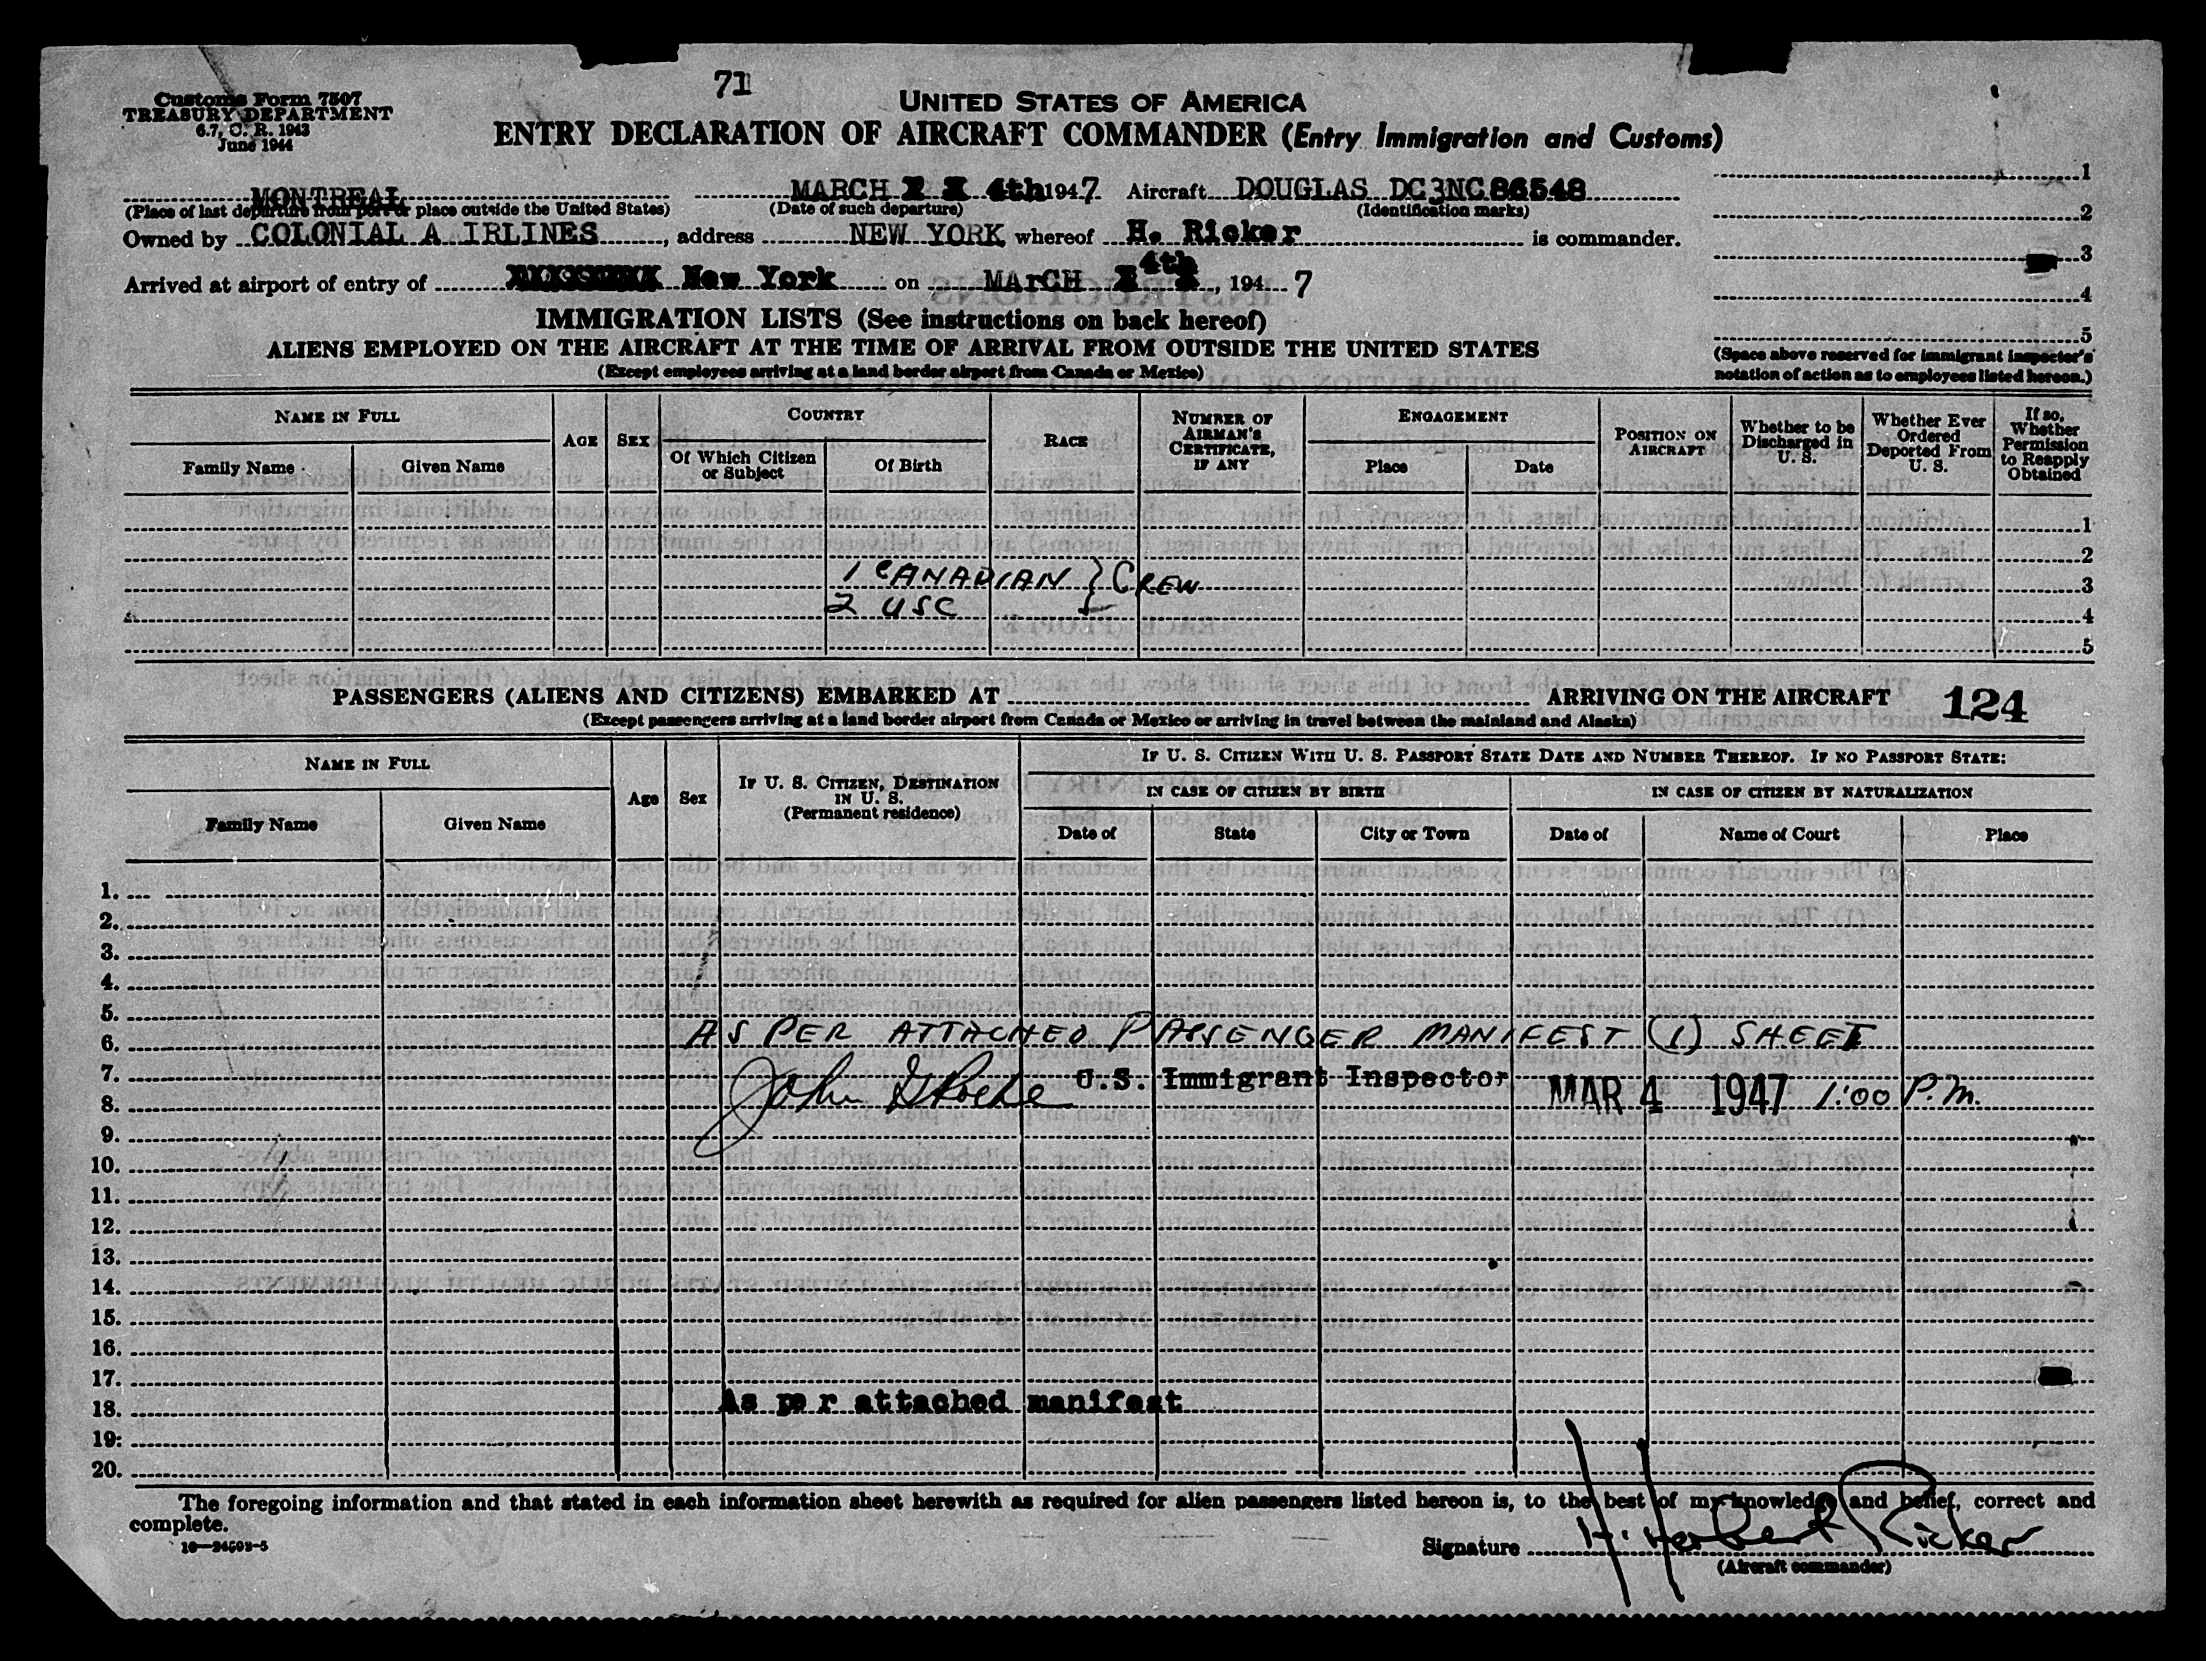 71
Customs Form 7507
TREASURY DEPARTMENT
6.7, C. R. 1943
June 1944
UNITED STATES OF AMERICA
ENTRY DECLARATION OF AIRCRAFT COMMANDER (Entry Immigration and Customs)
MONTREAL MARCH 4th 1947 Aircraft DOUGLAS DC3NC86548
(Place of last departure from port or place outside the United States) (Date of such departure) (Identification marks)
Owned by COLONIAL A IRLINES, address NEW YORK whereof H. Ricker is commander.
Arrived at airport of entry of New York on MArCH 4th, 1947
1
2
3
4
5
(Space above reserved for immigrant inspector's notation of action as to employees listed hereon.)
IMMIGRATION LISTS (See instructions on back hereof)
ALIENS EMPLOYED ON THE AIRCRAFT AT THE TIME OF ARRIVAL FROM OUTSIDE THE UNITED STATES
(Except employees arriving at a land border airport from Canada or Mexico)
NAME IN FULL
Family Name Given Name
AGE
SEX
COUNTRY
Of Which Citizen or Subject
Of Birth
RACE
NUMBER OF AIRMAN'S CERTIFICATE, IF ANY
ENGAGEMENT
Place Date
POSITION ON AIRCRAFT
Whether to be Discharged in U. S.
Whether Ever Ordered Deported From U. S.
If so, Whether Permission to Reapply Obtained
1
2
1 CANADIAN } CREW 3
2 USC 4
5
PASSENGERS (ALIENS AND CITIZENS) EMBARKED AT ARRIVING ON THE AIRCRAFT 124
(Except passengers arriving at a land border airport from Canada or Mexico or arriving in travel between the mainland and Alaska)
NAME IN FULL
Family Name Given Name
Age
Sex
IF U. S. CITIZEN, DESTINATION IN U. S.
(Permanent residence)
IF U. S. CITIZEN WITH U. S. PASSPORT STATE DATE AND NUMBER THEREOF. IF NO PASSPORT STATE:
IN CASE OF CITIZEN BY BIRTH
IN CASE OF CITIZEN BY NATURALIZATION
Date of State City or Town Date of Name of Court Place
1.
2.
3.
4.
5.
6. AS PER ATTACHED PASSENGER MANIFEST (1) SHEET
7. U.S. Immigrant Inspector
8. John MAR 4 1947 1:00 P.M.
9.
10.
11.
12.
13.
14.
15.
16.
17.
18. As pe r attached manifest
19.
20.
The foregoing information and that stated in each information sheet herewith as required for alien passengers listed hereon is, to the best of my knowledge and belief, correct and
complete.
Signature H. Herbert Ricker
(Aircraft commander)